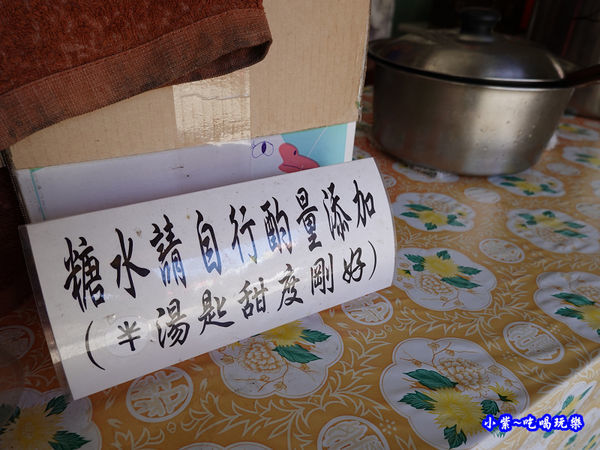 糖水請自行酌量添加
(半湯匙甜度剛好)
小紫~吃喝玩樂